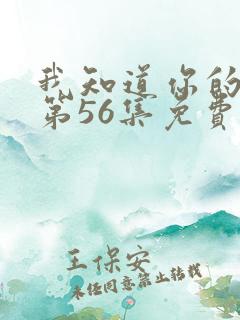 我知道你的
第56集免費
王保安
未经同意禁止转载